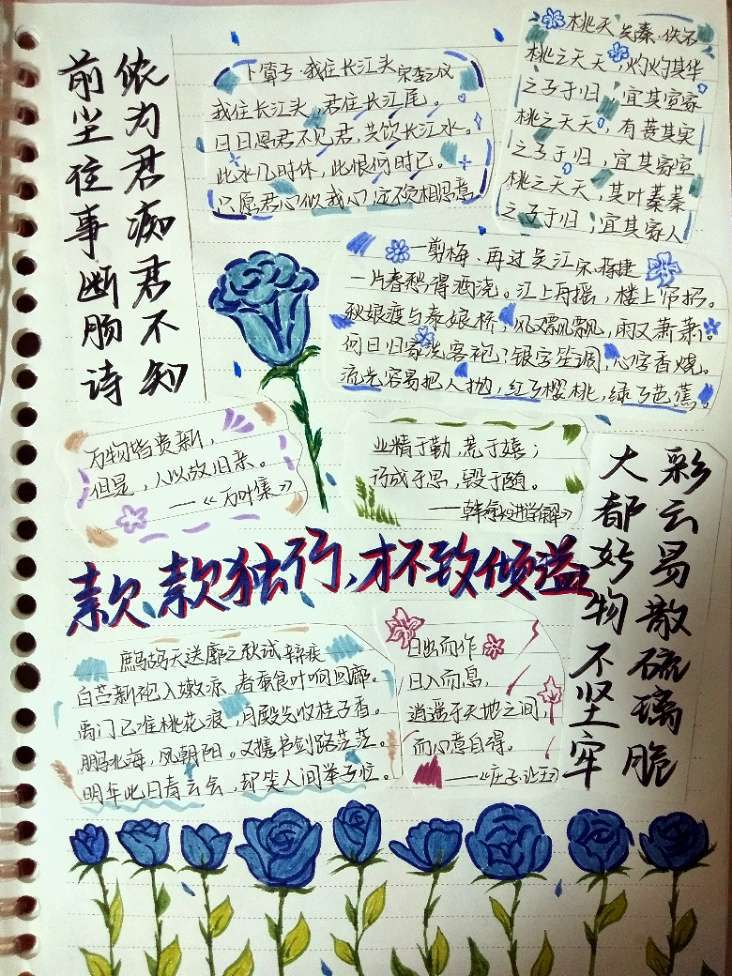 侬为君痴君不知
前尘往事断肠诗
卜算子·我住长江头 宋李之仪
我住长江头,君住长江尾。
日日思君不见君,共饮长江水。
此水几时休,此恨何时已。
只愿君心似我心,定不负相思意
桃夭 先秦·佚名
桃之夭夭,灼灼其华
之子于归,宜其室家
桃之夭夭,有蕡其实
之子于归,宜其家室
桃之夭夭,其叶蓁蓁
之子于归,宜其家人
一剪梅、再过吴江 宋·蒋捷
一片春愁得酒浇。江上舟摇,楼上帘招。
秋娘渡与泰娘桥,风又飘飘,雨又萧萧。
何日归家洗客袍,银字笙调,心字香烧。
流光容易把人抛,红了樱桃,绿了芭蕉。
万物皆贵新,
但是,人以故旧亲。
——《万叶集》
业精于勤,荒于嬉;
行成于思,毁于随。
——韩愈《进学解》
彩云易散硫璃脆
大都好物不坚牢
款款独行,才不致倾溢
鹧鸪天 送廓之秋试 辛弃疾
白苎新袍入嫩凉,春蚕食叶响回廊。
禹门已准桃花浪,月殿先收桂子香。
鹏北海,凤朝阳。又携书剑路茫茫。
明年此日青云会,却笑人间举子忙。
日出而作
日入而息,
逍遥于天地之间,
而心意自得。
——《庄子·让王》